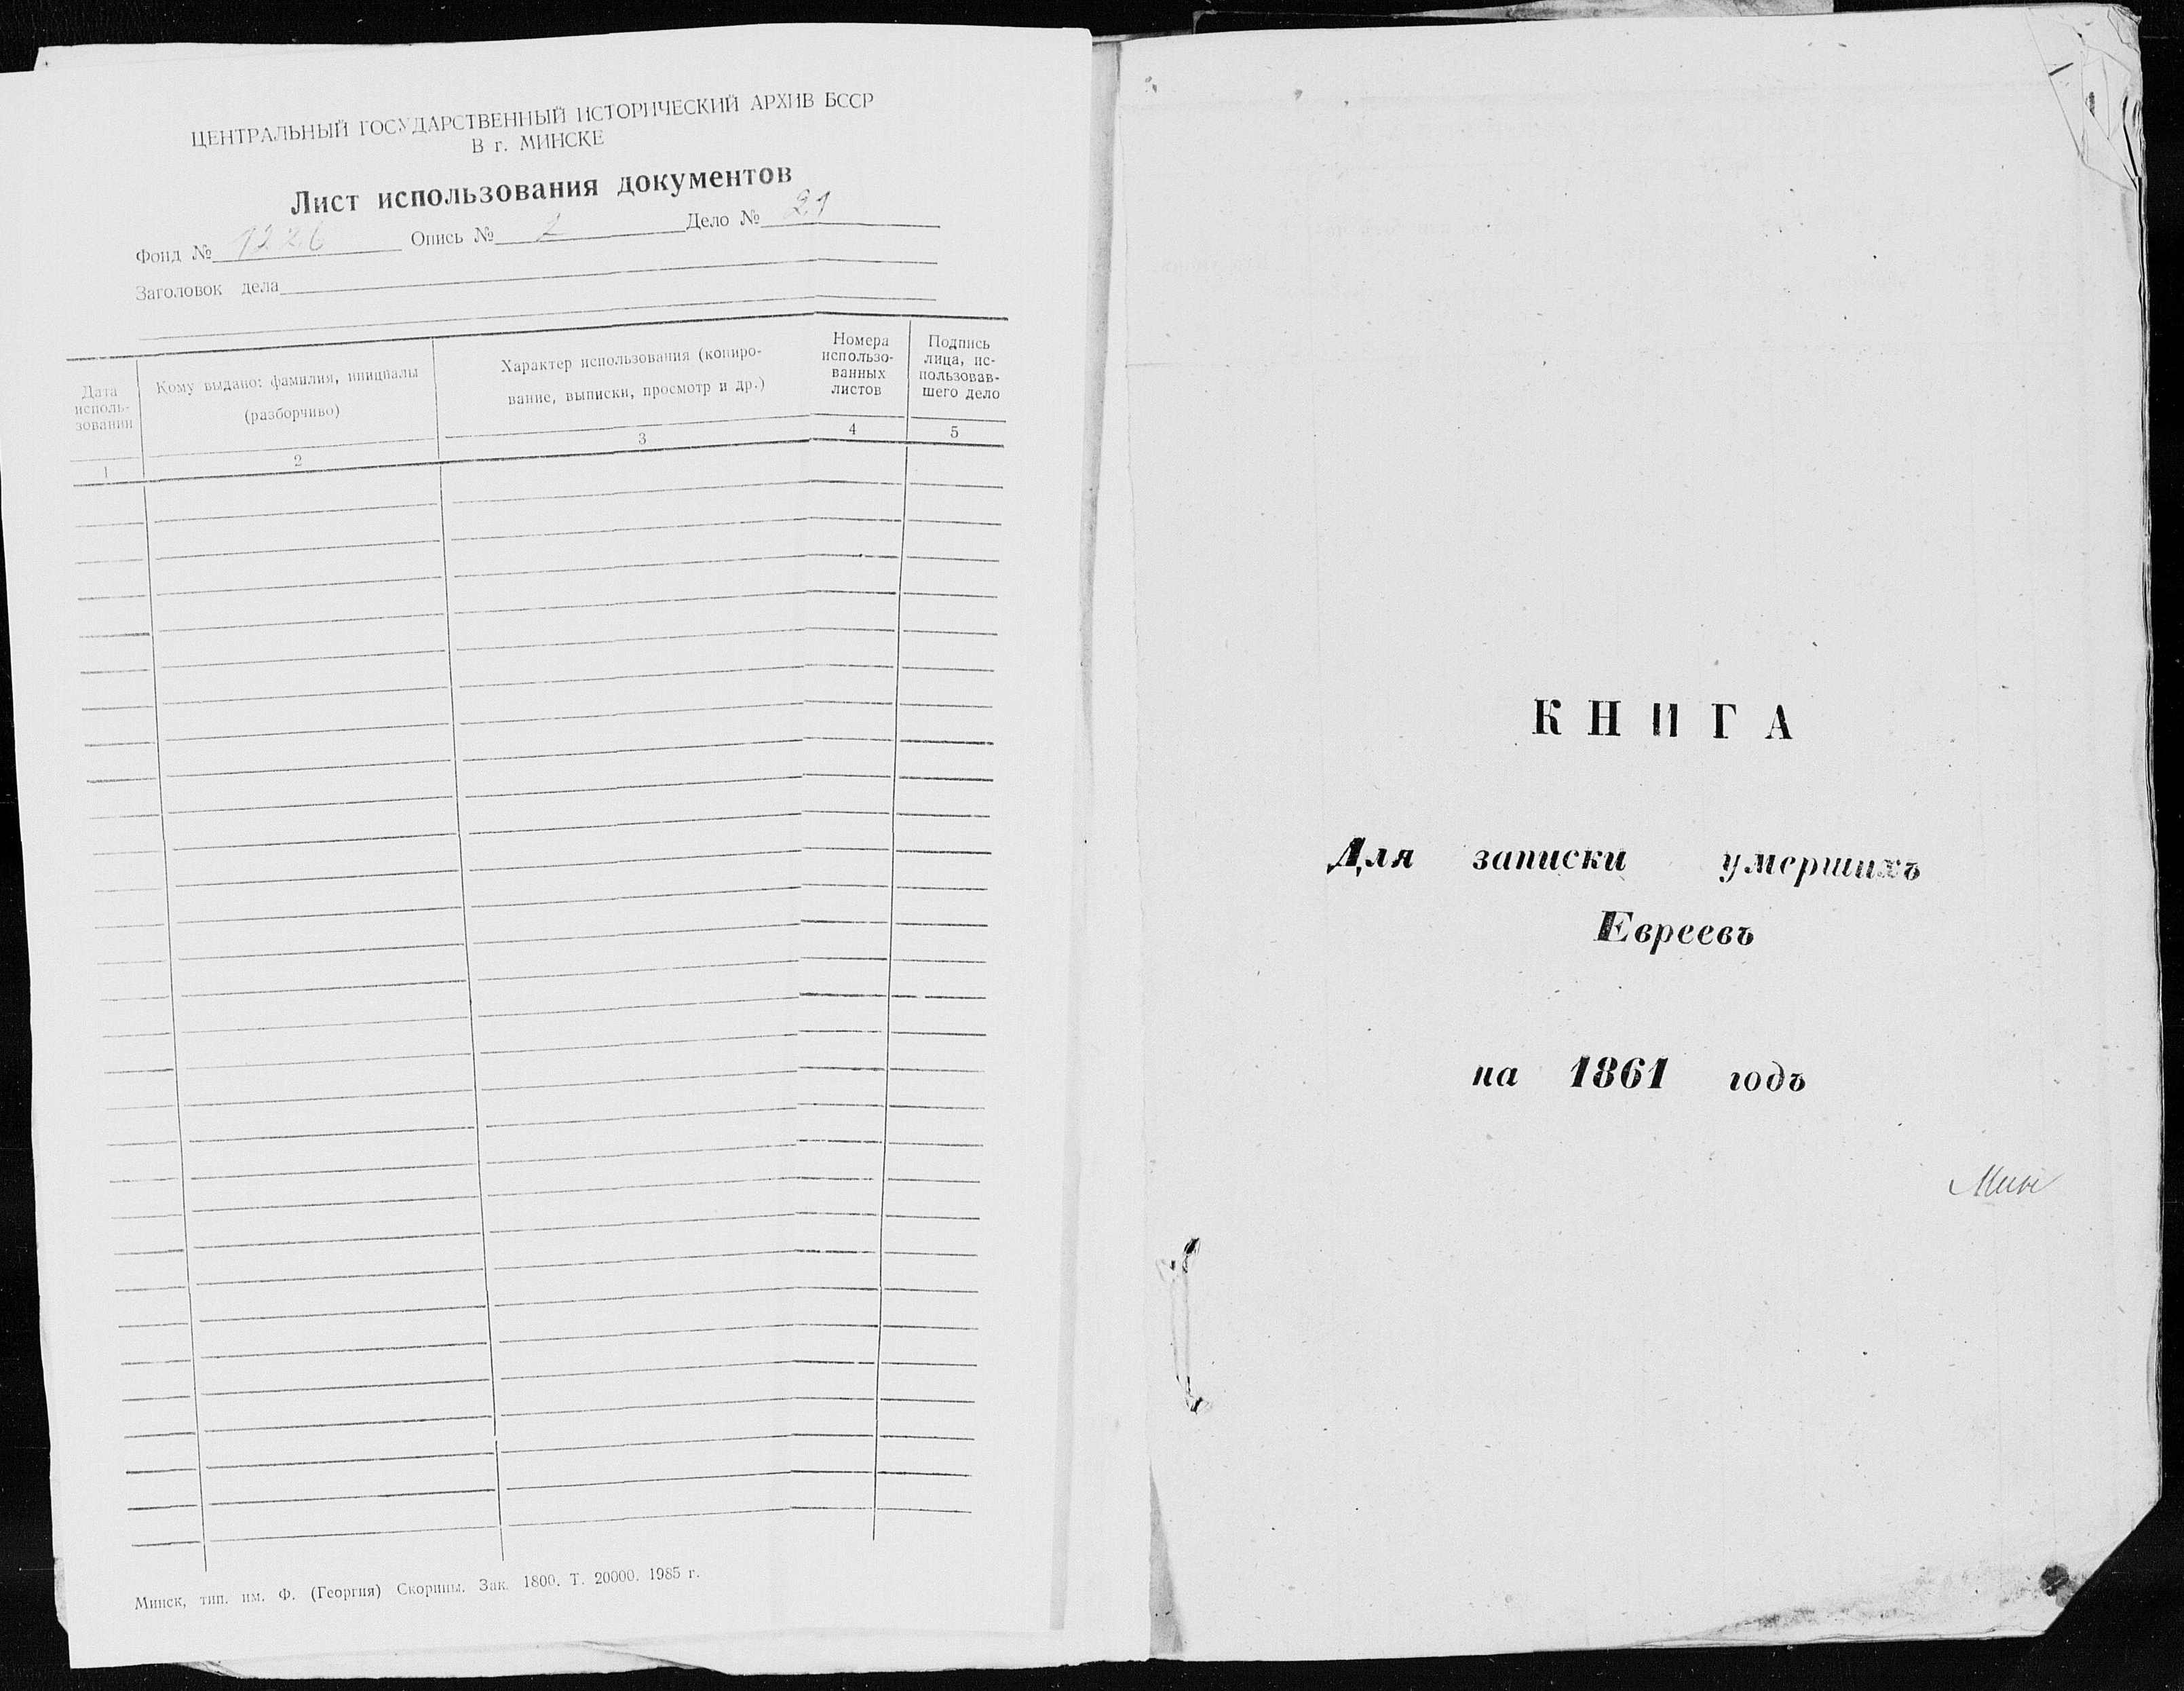 ЦЕНТРАЛЬНЫЙ ГОСУДАРСТВЕННЫЙ ИСТОРИЧЕСКИЙ АРХИВ БССР
В г. МИНСКЕ
Лист использования документов
Фонд № 1226 Опись № 2 Дело № 21
Заголовок дела
Дата
исполь-
зования
Кому выдано: фамилия, инициалы
(разборчиво)
Характер использования (копиро-
вание, выписки, просмотр и др.)
Номера
использо-
ванных
листов
Подпись
лица, ис-
пользовав-
шего дело
1 2 3 4 5
Минск, тип. им. Ф. (Георгия) Скорины. Зак. 1800. Т. 20000. 1985 г.
КНИГА
Для записки умершихъ
Евреевъ
на 1861 годъ